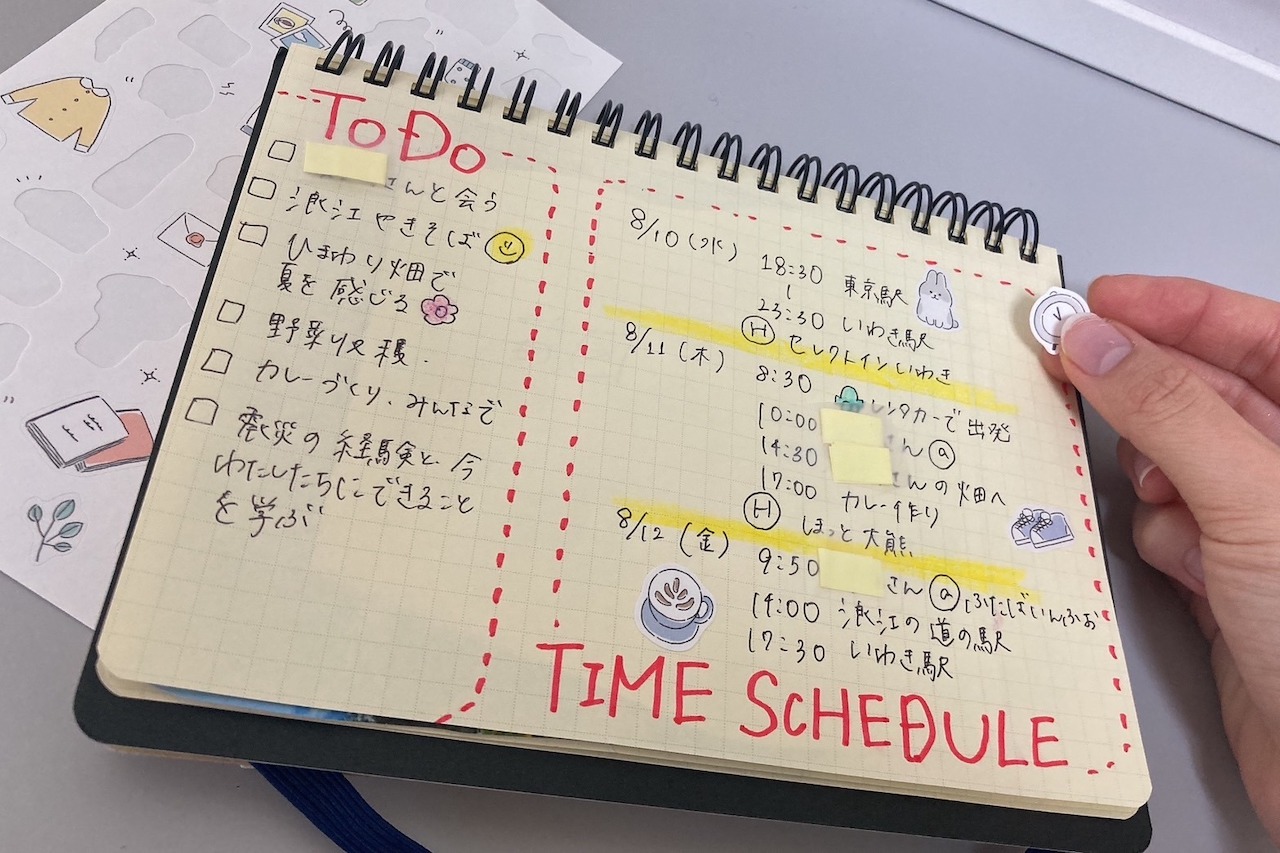 ToDo
さんと会う
浪江やきそば
ひまわり畑で
夏を感じる
野菜収穫.
カレーづくり、みんなで
震災の経験と、今
わたしたちにできること
を学ぶ
8/10(水) 18:30 東京駅
23:30 いわき駅
Ⓗ セレクトインいわき
8/11(木) 8:30 レンタカーで出発
10:00 さん ⓐ
14:30 さんの畑へ
17:00 カレー作り
Ⓗ ほっと大熊
8/12(金) 9:50 さん ⓐ ふたばいんふぉ
14:00 浪江の道の駅
17:30 いわき駅
TIME SCHEDULE